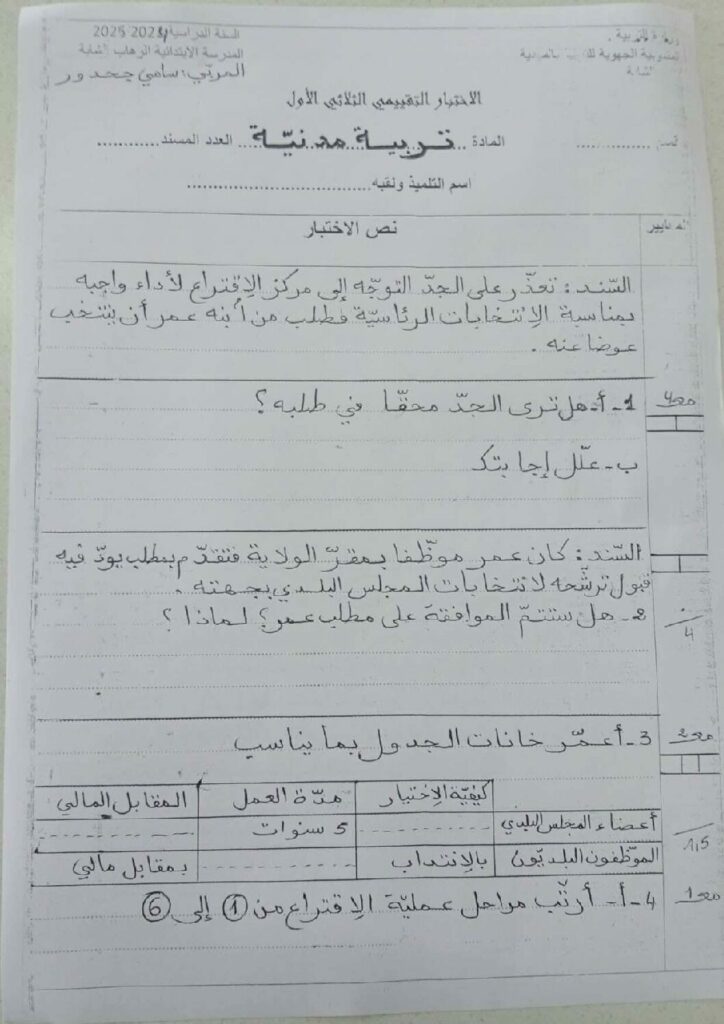 وزارة التربية
السنة الدراسية 2024 2025
المندوبية الجهوية للتربية بالمهدية
المدرسة الابتدائية الرهاب الشابة
الشابة
المربّي: سامي جحدور
الاختبار التقييمي الثلاثي الأول
المادة ..تربية مدنيّة.. العدد المسند............
اسم التلميذ ولقبه..................................
المعايير
نص الاختبار
السّند: تعذّر على الجدّ التوجّه إلى مركز الإقتراع لأداء واجبه
بمناسبة الإنتخابات الرئاسيّة فطلب من أبنه عمر أن ينتخب
عوضا عنه.
مع4
1-أ-هل ترى الجدّ محقّا في طلبه؟
ب-علّل إجابتك
السّند: كان عمر موظّفا بمقرّ الولاية فتقدّم بمطلب يودّ فيه
قبول ترشّحه لانتخابات المجلس البلدي بجهته.
2- هل ستتمّ الموافقة على مطلب عمر؟ لماذا؟
4
مع2
3-أعمّر خانات الجدول بما يناسب
كيفيّة الإختيار مدّة العمل المقابل المالي
أعضاء المجلس البلدي ------------ 5 سنوات ------------
1,5
الموّظفون البلديّون بالإنتداب ------------ بمقابل مالي
مع1
4-أ- أرتّب مراحل عمليّة الإقتراع من 1 إلى 6